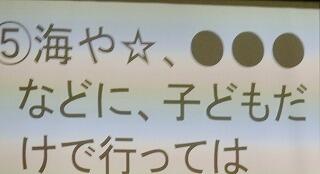 ⑤海や☆、●●●
などに、子どもだ
けで行っては